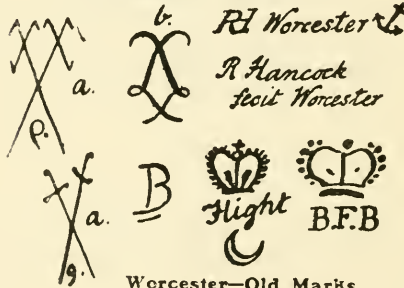 b.
RH Worcester
a.
R Hancock
fecit Worcester
p.
B
a.
Flight
B.F.B
g.
Worcester—Old Marks